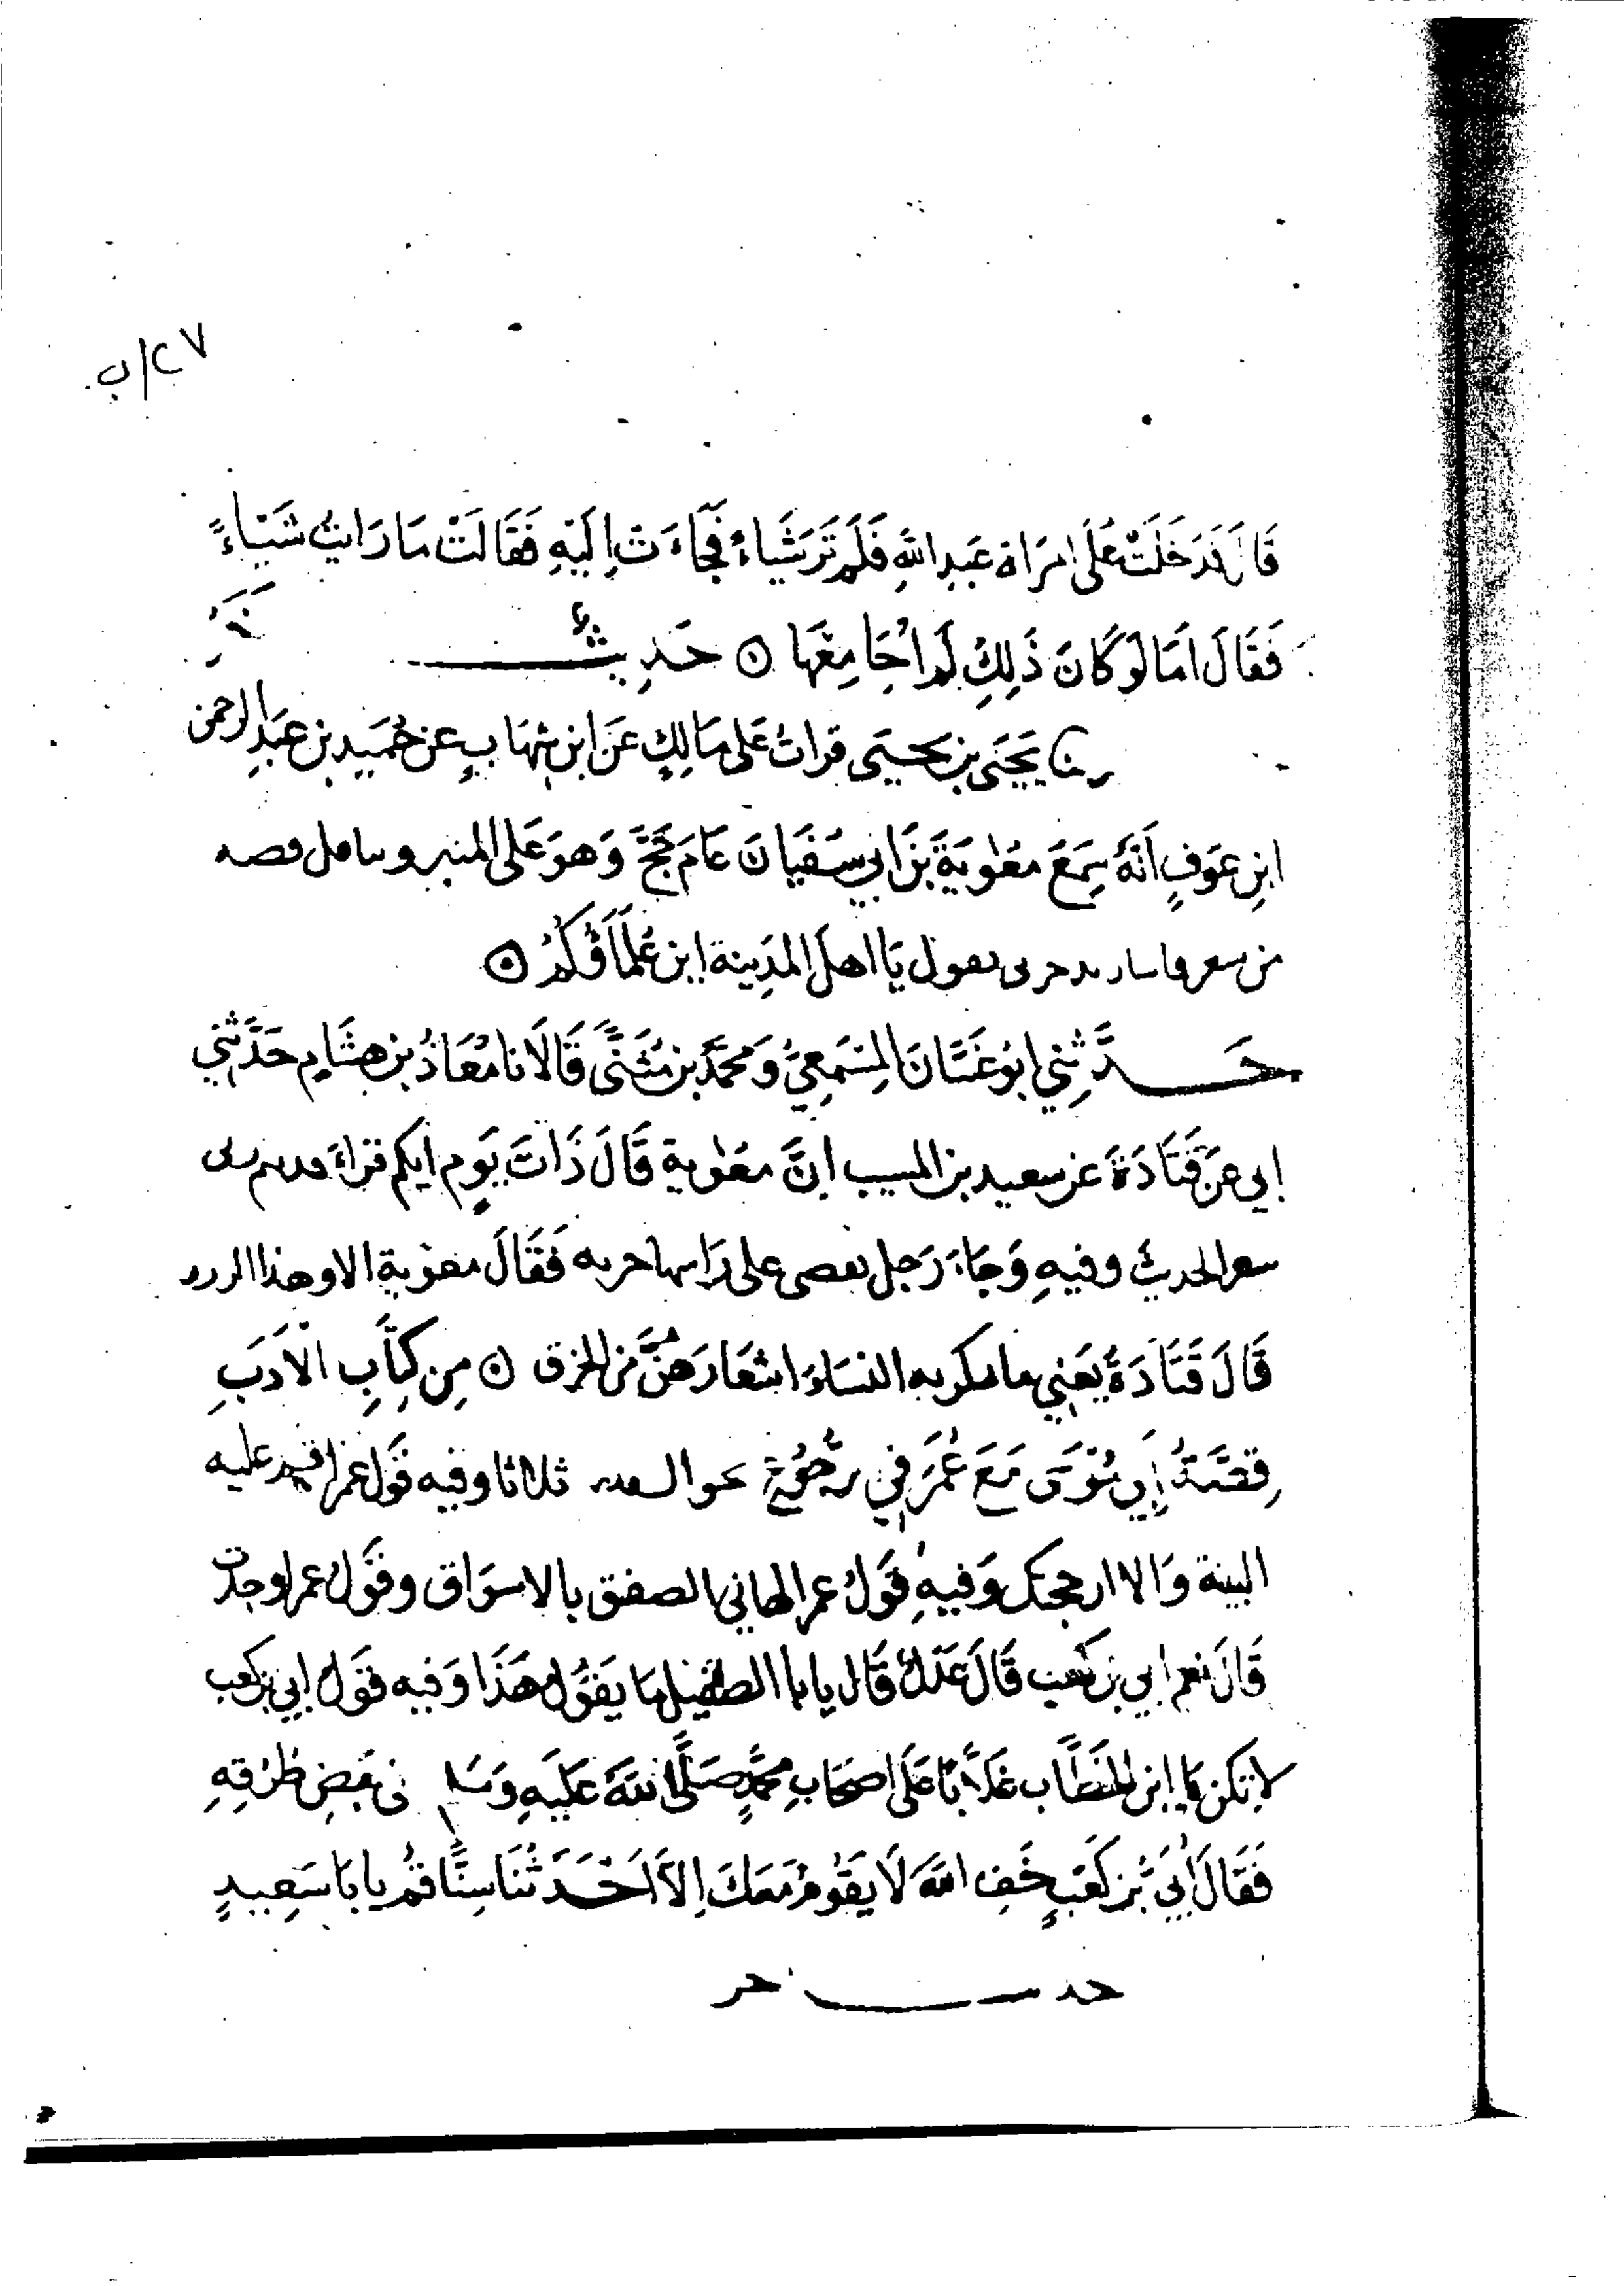 ٢٧/ب
قَالَ فَدَخَلَتْ عَلَى امرَاة عَبدِ اللهِ فَلَمْ تَرَ شَيَاءً فَجَاءَت اِلَيْهِ فَقَالَتْ مَا رَايتُ شَيْاءً
فَقَالَ امَا لَو كَانَ ذَلِكِ لَم اُجَامِعْهَا ۞ حَدِيث
نا يَحْيَى بن يحيَى قرات عَلى مَالِكٍ عَن ابن شِهَابٍ عن حُمَيدِ بن عَبدِ الرحمن
ابنِ عَوفٍ اَنَّهُ سَمِعَ مَعٰوِيَةَ بْنَ ابي سُفيَانَ عَامَ حَجَّ وَهوَ عَلى المنبر وتناول قصه
من شعر يقول يَا اهلَ المَدِينة اين عُلمَاؤُكُمْ ۞
حَدَّثَنِي ابوُ غَسَّانَ المِسْمَعِيُّ وَمحمَّدُ بن مُثَنًّى قَالَا نا مُعَاذُ بن هشَامٍ حَدَّثَنِي
ابِي عَنْ قَتَادَةَ عن سعيد بن المسيب انَّ معٰوية قَالَ ذَاتَ يَوٍم ايكم
الحديثَ وفيهِ وَجَاءَ رَجل بعصى على رَاسها خرقه فَقَالَ معٰوية الا وهذا الزور
قَالَ قَتَادَةُ يَعنِي ما النسَاءُ اشعَارَهُنَّ من الخرق ۞ مِن كِتَابِ الْاَدَبِ
قِصَّةُ اَبِي مُوْسَى مَعَ عُمَرَ فِي رُجُوعِهِ ثلاثا وفيه قَول عمر اقم عليه
البينة وَالا اوجعتك وَفيهِ قَولُ عمر الهاني الصفق بالاسوَاق وقَولُ عمر اوجدت
قَالَ نعم ابي بن كعب قَالَ عَدلٌ قَال يابا الطفيل مَا يَقُولُ هَذَا وَفيه قَول ابي بن كعب
لا تكن يا ابن الخَطَّاب عَذَابًا عَلَى اصحَابِ محمَّدٍ صَلَّى اللهُ عَليهِ وَسَلم في بَعضِ طُرُقِهِ
فَقَالَ اُبَيُّ بْنُ كَعْبٍ خَفِ اللهَ لَا يَقُومُ مَعَكَ اِلَّا اَحْدَثُنَا سِنًّا قُمْ يابَا سَعِيدٍ